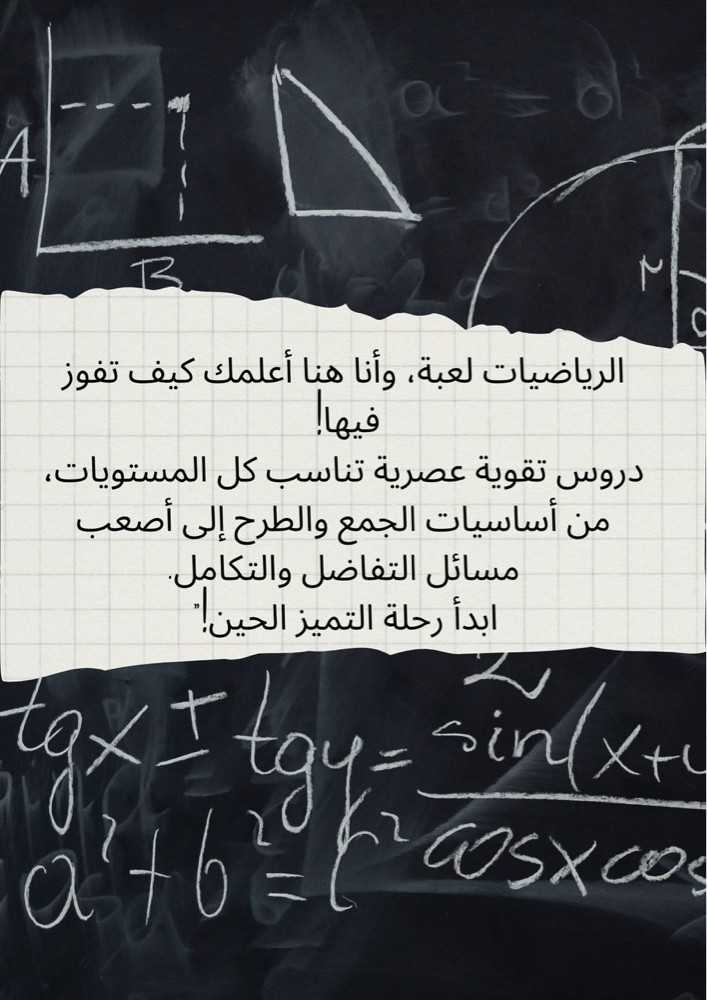 A
B
الرياضيات لعبة، وأنا هنا أعلمك كيف تفوز
فيها!
دروس تقوية عصرية تناسب كل المستويات،
من أساسيات الجمع والطرح إلى أصعب
مسائل التفاضل والتكامل.
ابدأ رحلة التميز الحين!"
2
tgx ± tgy = sin(x+
cosx cos
a² + b² = c²